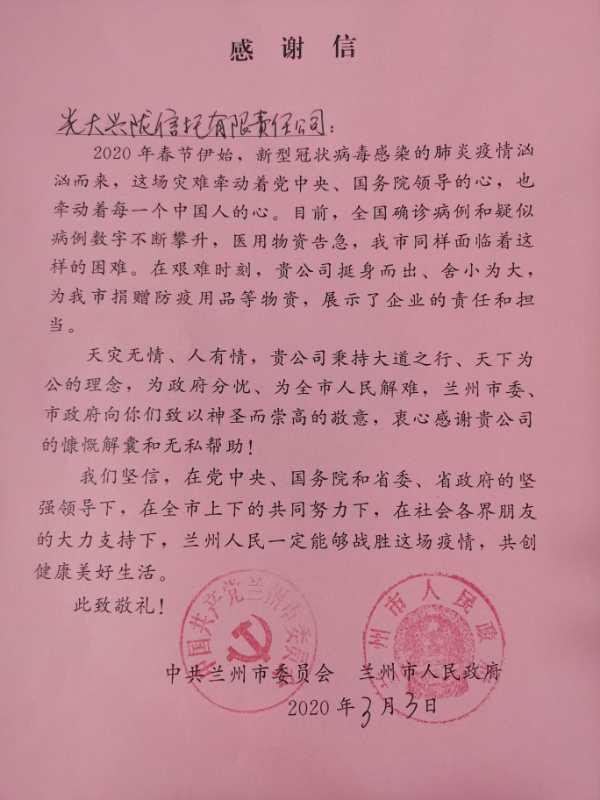 感谢信
光大兴陇信托有限责任公司：
2020年春节伊始，新型冠状病毒感染的肺炎疫情汹
汹而来，这场灾难牵动着党中央、国务院领导的心，也
牵动着每一个中国人的心。目前，全国确诊病例和疑似
病例数字不断攀升，医用物资告急，我市同样面临着这
样的困难。在艰难时刻，贵公司挺身而出、舍小为大，
为我市捐赠防疫用品等物资，展示了企业的责任和担
当。
天灾无情、人有情，贵公司秉持大道之行、天下为
公的理念，为政府分忧、为全市人民解难，兰州市委、
市政府向你们致以神圣而崇高的敬意，衷心感谢贵公司
的慷慨解囊和无私帮助！
我们坚信，在党中央、国务院和省委、省政府的坚
强领导下，在全市上下的共同努力下，在社会各界朋友
的大力支持下，兰州人民一定能够战胜这场疫情，共创
健康美好生活。
此致敬礼！
中国共产党兰州市委员会
兰州市人民政府
中共兰州市委员会 兰州市人民政府
2020年3月3日